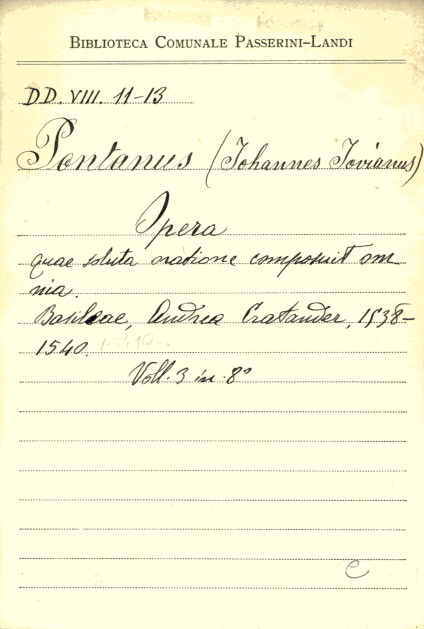 BIBLIOTECA COMUNALE PASSERINI-LANDI
DD. VIII. 11-13
Pontanus (Iohannes Iovianus)
Opera
quae soluta oratione composuit om-
nia.
Basileae, Andrea Cratander, 1538-
1540.
Voll. 3 in 8°
C